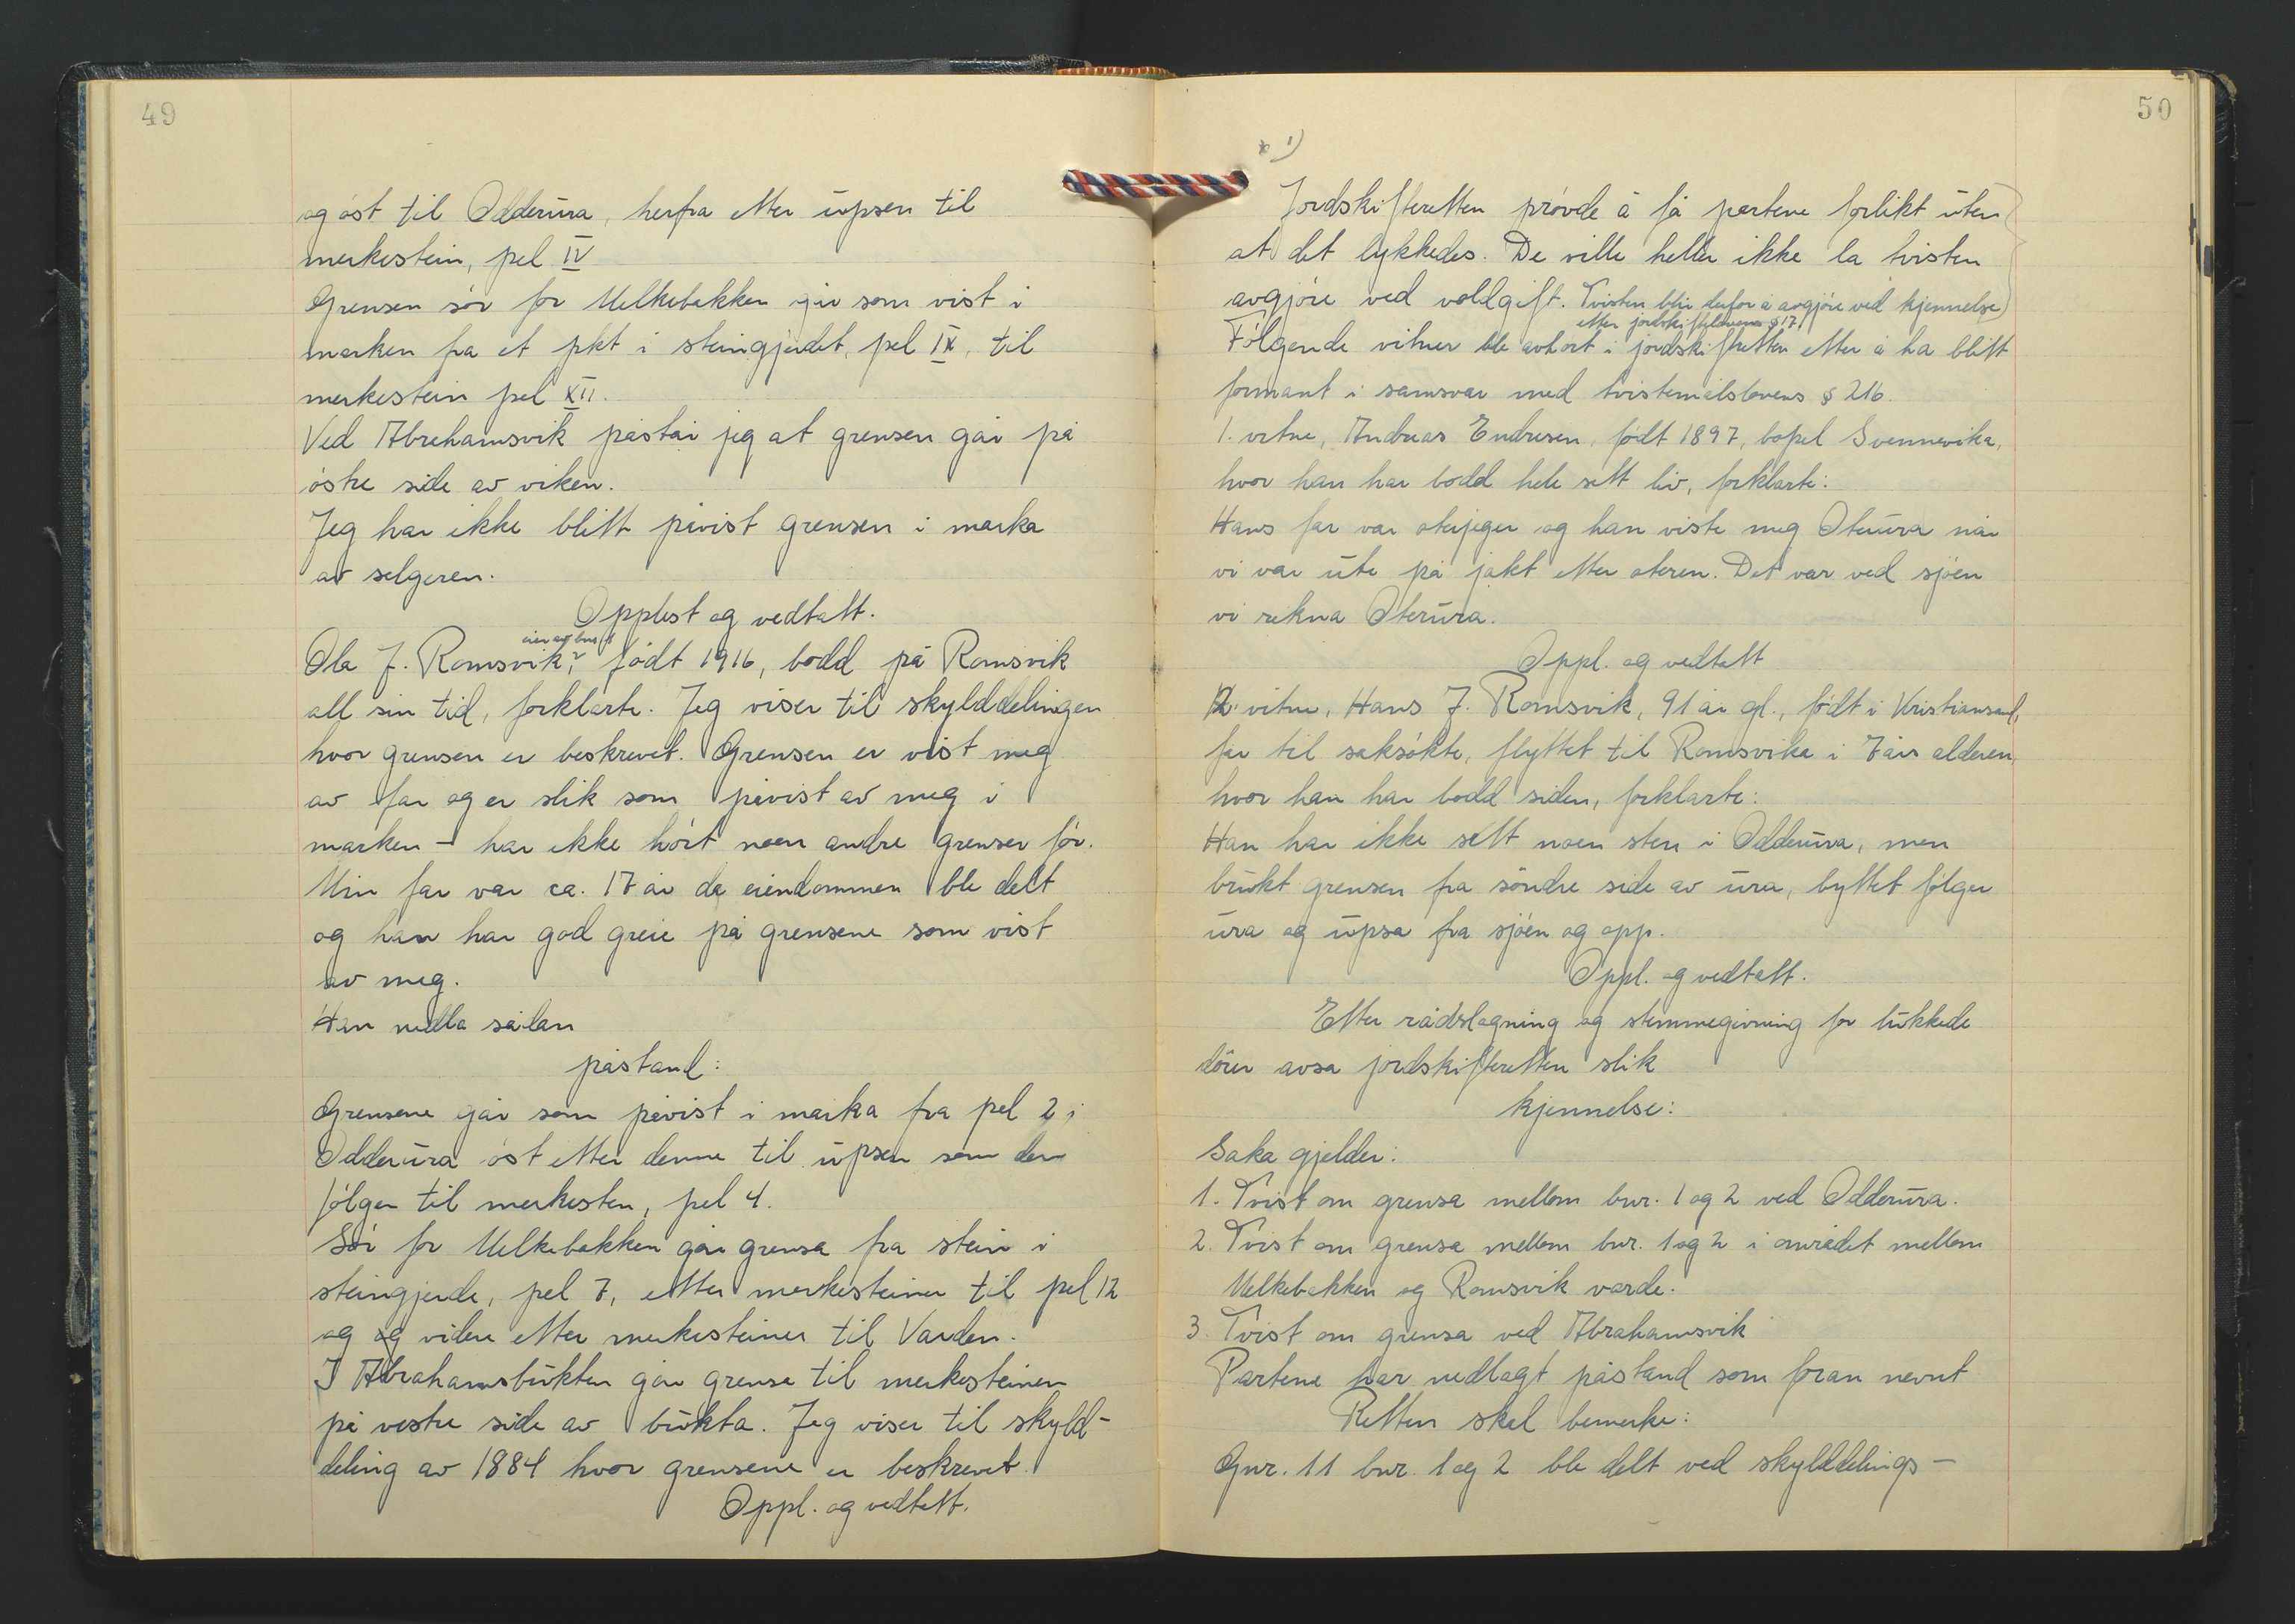 49
og øst til Odderura, herfra etter upsen til
merkestein, pel IV
Grensen sør for Melkebakken går som vist i
marken fra et pkt i steingjerdet, pel IX, til
merkestein pel XII.
Ved Abrahamsvik påstår jeg at grensen går på
østre side av viken.
Jeg har ikke blitt påvist grensen i marka
av selgeren.
Opplest og vedtatt.
eier av bnr
Ola J. Romsvik, født 1916, bodd på Romsvik
all sin tid, forklarte. Jeg viser til skylddelingen
hvor grensen er beskrevet. Grensen er vist meg
av far og er slik som påvist av meg i
marken – har ikke hørt noen andre grenser før.
Min far var ca. 17 år da eiendommen ble delt
og han har god greie på grensene som vist
av meg.
Han nedla sålan
påstand:
Grensene går som påvist i marka fra pel 2 i
Odderura øst etter denne til upsen som den
følger til merkesten, pel 4.
Sør for Melkebakken går grensa fra stein i
steingjerde, pel 7, etter merkesteiner til pel 12
og og videre etter merkesteiner til Varden.
I Abrahamsbukten går grensa til merkesteinen
på vestre side av bukta. Jeg viser til skyld-
deling av 1884 hvor grensene er beskrevet.
Oppl. og vedtatt.
50
1)
Jordskifteretten prøvde å få partene forlikt uten
at det lykkedes. De ville heller ikke la tvisten
avgjøre ved voldgift. Tvisten blir derfor å avgjøre ved kjennelse
etter jordskiftelovens § 17
Følgende vitner ble avhørt i jordskifteretten etter å ha blitt
formant i samsvar med tvistemålslovens § 216.
1. vitne, Andreas Endresen, født 1897, bopel Svennevika,
hvor han har bodd hele sitt liv, forklarte:
Hans far var oterjeger og han viste meg Oterura når
vi var ute på jakt etter oteren. Det var ved sjøen
vi rekna Oterura.
Oppl. og vedtatt
2. vitne, Hans J. Romsvik, 91 år gl., født i Kristiansand,
far til saksøkte, flyttet til Romsvika i 7 års alderen,
hvor han har bodd siden, forklarte:
Han har ikke sett noen sten i Odderura, men
brukt grensen fra søndre side av ura, byttet følger
ura og upsa fra sjøen og opp.
Oppl. og vedtatt.
Etter rådslagning og stemmegivning for lukkede
dører avsa jordskifteretten slik
kjennelse:
Saka gjelder:
1. Tvist om grensa mellom bnr. 1 og 2 ved Odderura.
2. Tvist om grensa mellom bnr. 1 og 2 i området mellom
Melkebakken og Romsvik varde.
3. Tvist om grensa ved Abrahamsvik
Partene har nedlagt påstand som foran nevnt
Retten skal bemerke:
Gnr. 11 bnr. 1 og 2 ble delt ved skylddelings-